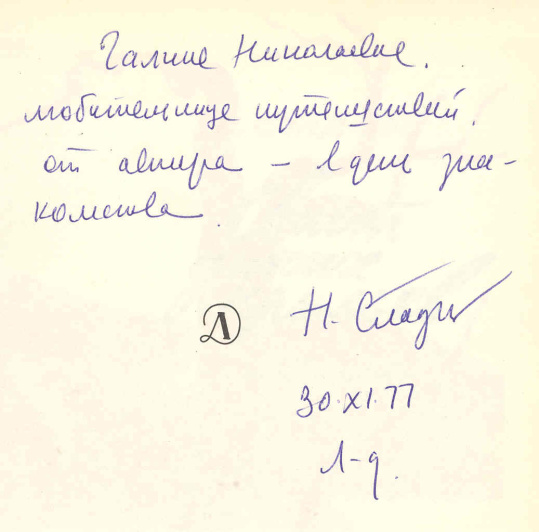 Галине Николаевне,
любительнице путешествий,
от автора – в день зна-
комства
Л
Н. Сладк
30.XI.77
Л-д.